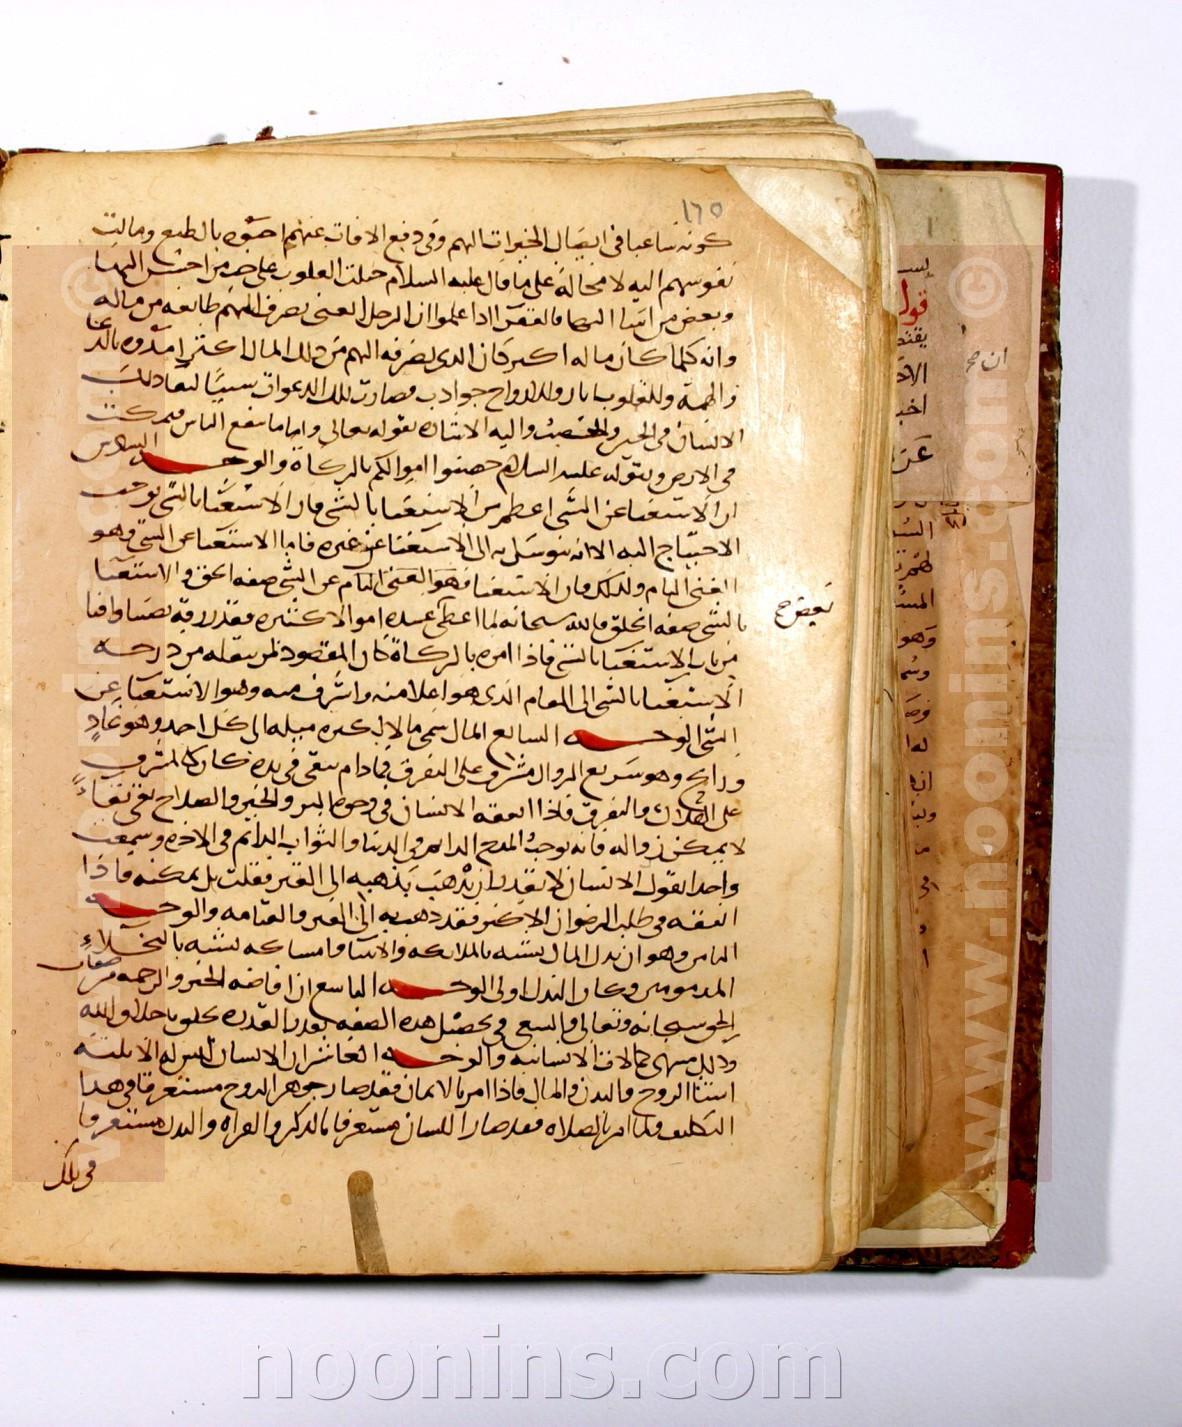 ١٦٥
كونه ساعيا في ايصال الخيرات اليهم وفي دفع الافات عنهم احبوه بالطبع ومالت
نفوسهم اليه لا محالة على ما قال عليه السلام جبلت القلوب على حب من احسن اليها
وبغض من اسا اليها فالفقرا اذا علموا ان الرجل الغني يصرف اليهم طائفة من ماله
وانه كلما كان ماله اكثر كان الذي يصرفه اليهم من ذلك المال اكثر امدوه بالدعا
والهمة وللقلوب اثار وللارواح جواذب فصارت تلك الدعوات سببا لبقا ذلك
الانسان في الخير والخصب واليه الاشارة بقوله تعالى واما ما ينفع الناس فيمكث
في الارض وبقوله عليه السلام حصنوا اموالكم بالزكاة والوجه السادس
ان الاستغنا عن الشي اعظم من الاستغنا بالشي فان الاستغنا بالشي يوجب
الاحتياج اليه الا انه يتوسل به الى الاستغنا عن غيره فاما الاستغنا عن الشي فهو
الغني التام ولذلك فان الاستغنا فهو الغنى التام عن الشي صفة الحق والاستغنا
بالشي صفة الخلق فالله سبحانه لما اعطى عبيده اموالا كثيرة فقد رزقه نصيبا وافيا
من باب الاستغنا بالشي فاذا امره بالزكاة كان المقصود ان ينقله من درجة
الاستغنا بالشي الى المقام الذي هو اعلا منه واشرف منه وهو الاستغنا عن
الشي الوجه السابع المال سمي مالا لكثرة ميله الى كل احد وهو غاد
ورايح وهو سريع الزوال مشرف على التفرق فما دام يبقى في يده كان كالمشرف
على الهلاك والتفرق فاذا انفقه الانسان في وجوه البر والخير والصلاح بقي بقاء
لا يمكن زواله فانه يوجب المدح الدائم في الدنيا والثواب الدائم في الاخرة وسمعت
واحدا يقول الانسان لا يقدر ان يذهب بذهبه الى القبر فقلت بل يمكنه فاذا
انفقه في طلب الرضوان الاكبر فقد ذهب به الى القبر والقيامة والوجه
الثامن وهو ان بذل المال تشبه بالملائكة والانبيا وامساكه تشبه بالبخلاء
المذمومين وكان البذل اولى الوجه التاسع ان افاضة الخير والرحمة من صفات
الحق سبحانه وتعالى والسعي في تحصيل هذه الصفة بقدر القدرة تخلق باخلاق الله
وذلك منتهى كمالات الانسانية والوجه العاشر ان الانسان ليس له الا ثلثة
اشيا الروح والبدن والمال فاذا امر بالايمان فقد صار جوهر الروح مستغرقا في هذا
التكليف ولما امر بالصلاة فقد صار اللسان مستغرقا بالذكر والقراة والبدن مستغرقا
في تلك
بعض صح
ان صح
قول
www.noonins.com
noonins.com